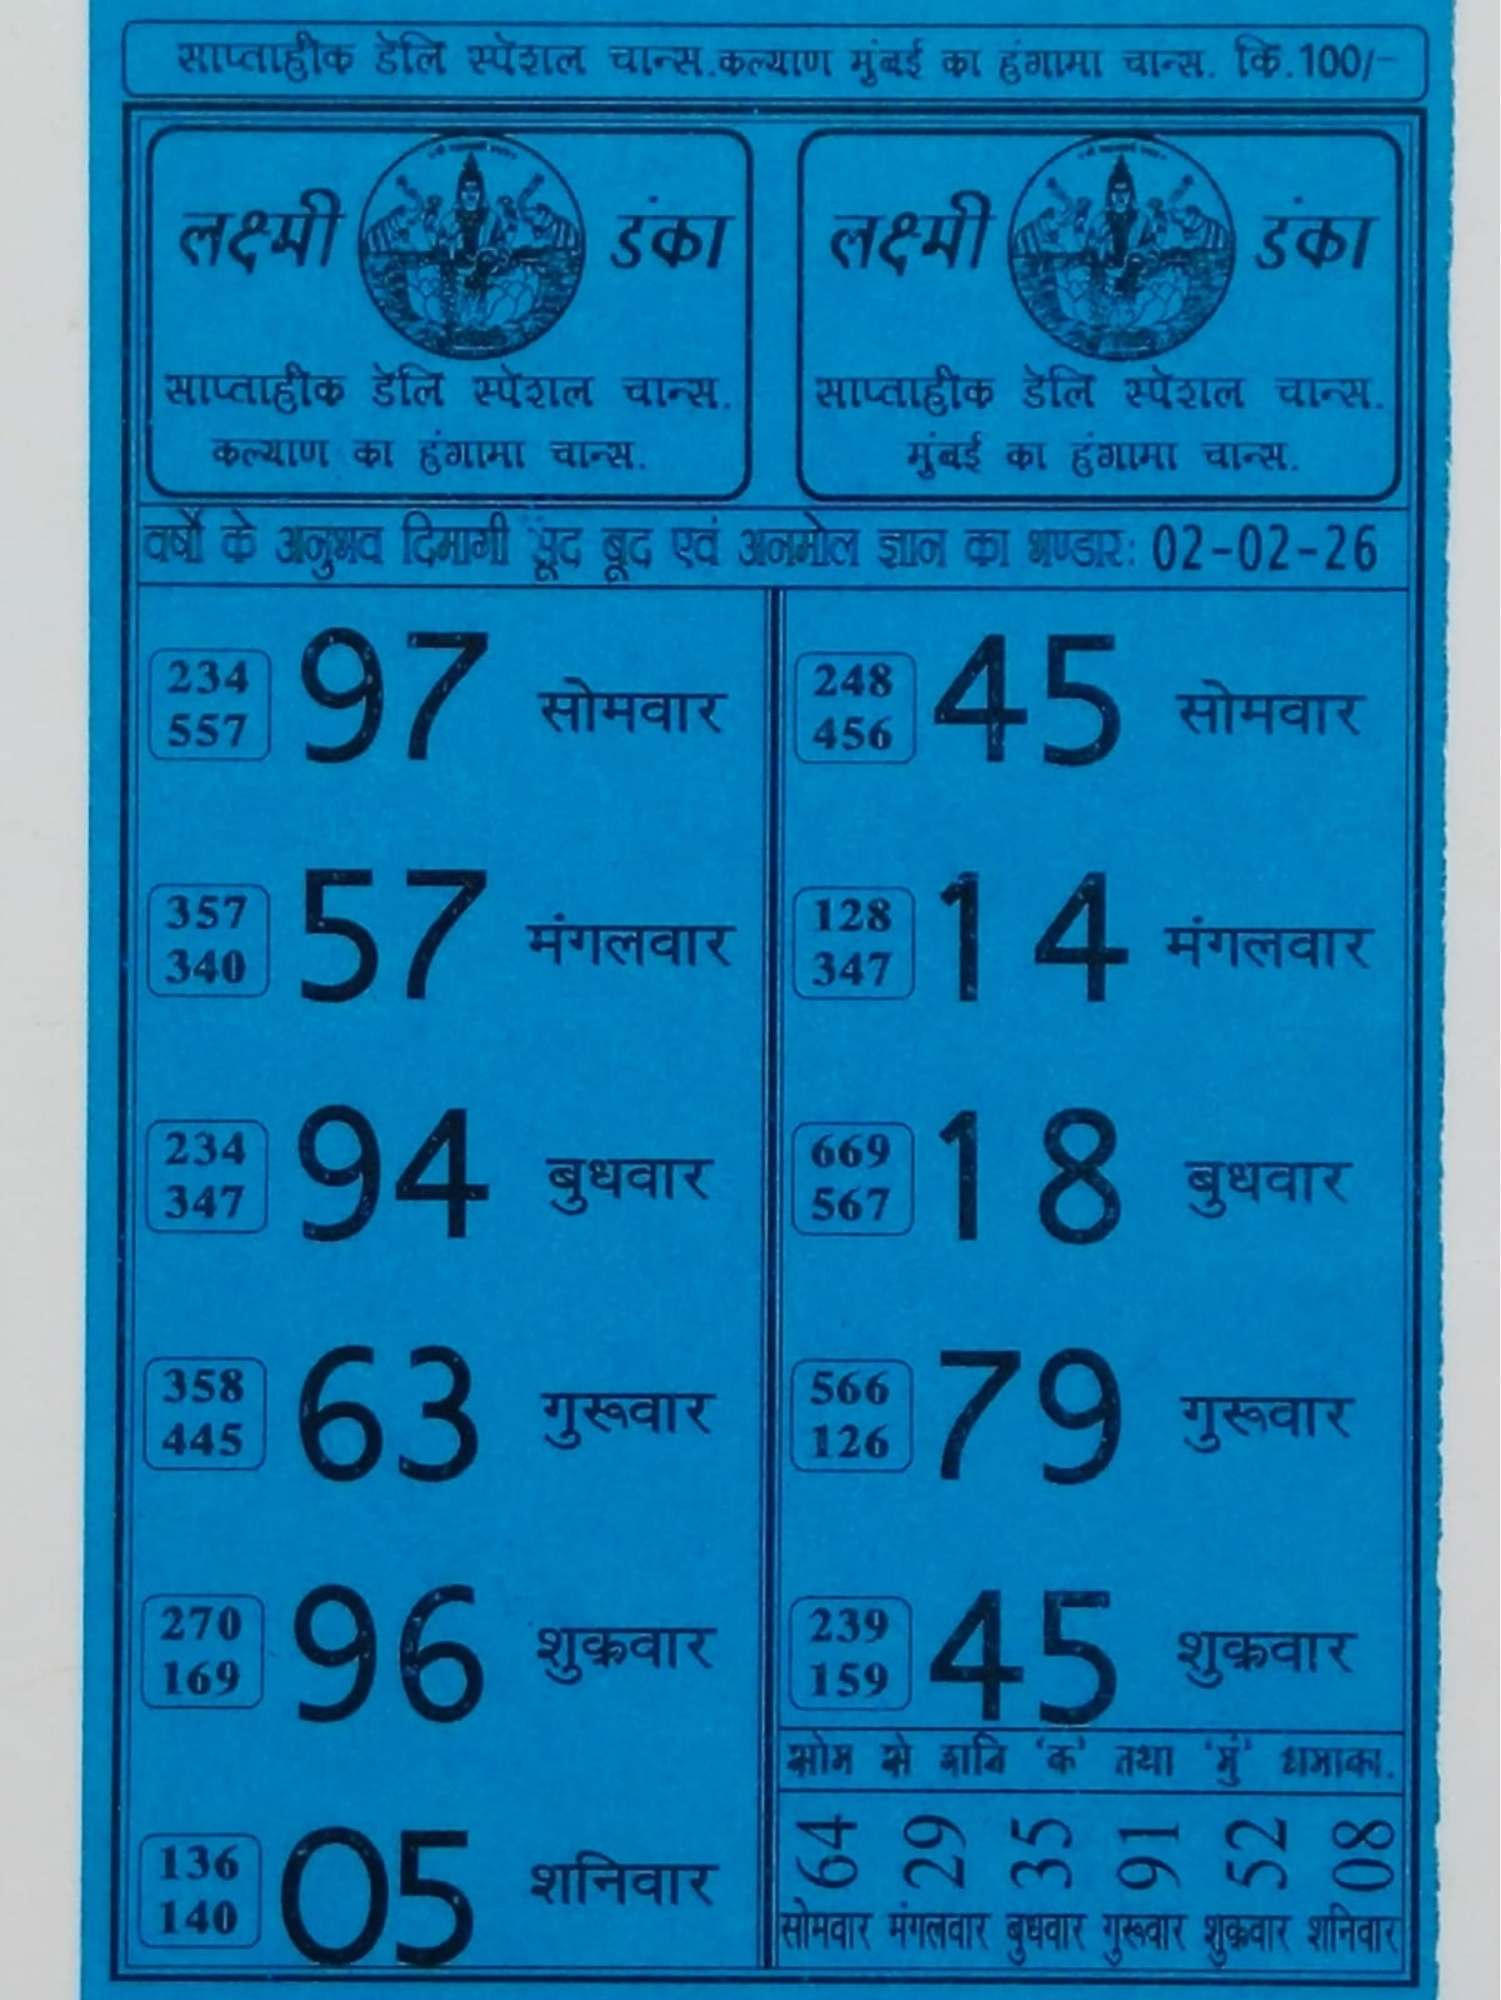 साप्ताहीक डेलि स्पेशल चान्स.कल्याण मुंबई का हंगामा चान्स. कि.100/-
लक्ष्मी डंका
साप्ताहीक डेलि स्पेशल चान्स.
कल्याण का हंगामा चान्स.
लक्ष्मी डंका
साप्ताहीक डेलि स्पेशल चान्स.
मुंबई का हंगामा चान्स.
वर्षो के अनुभव दिमागी सूंद बूद एवं अनमोल ज्ञान का भण्डार: 02-02-26
234
557
97 सोमवार
357
340
57 मंगलवार
234
347
94 बुधवार
358
445
63 गुरूवार
270
169
96 शुक्रवार
136
140
05 शनिवार
248
456
45 सोमवार
128
347
14 मंगलवार
669
567
18 बुधवार
566
126
79 गुरूवार
239
159
45 शुक्रवार
सोम से शनि 'क' तथा 'मुं' धमाका.
64 29 35 91 52 08
सोमवार मंगलवार बुधवार गुरूवार शुक्रवार शनिवार